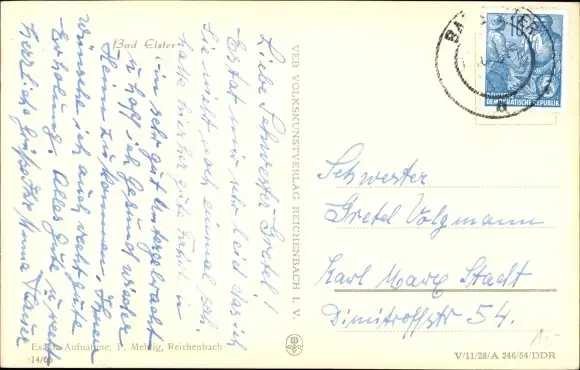 Bad Elster
Liebe Schwester Gretel!
Es tat mir sehr leid das ich
Sie nicht noch einmal sah.
hatte hierher gute Fahrt u
bin sehr gut untergebracht
u. hoff ich gesund wieder
Heim zu kommen. Ihnen
wünsche ich auch recht gute
Erholung. Alles Gute u. recht
herzliche Grüße Ihre Anna
Exakta-Aufnahme: P. Mehlig, Reichenbach
14/66
VEB VOLKSKUNSTVERLAG REICHENBACH I. V.
BAD ELSTER
a
DEUTSCHE
DEMOKRATISCHE REPUBLIK
Schwester
Gretel Volgmann
Karl Marx Stadt
Dimitroffstr 54.
1.-
V/11/28/A 246/54/DDR